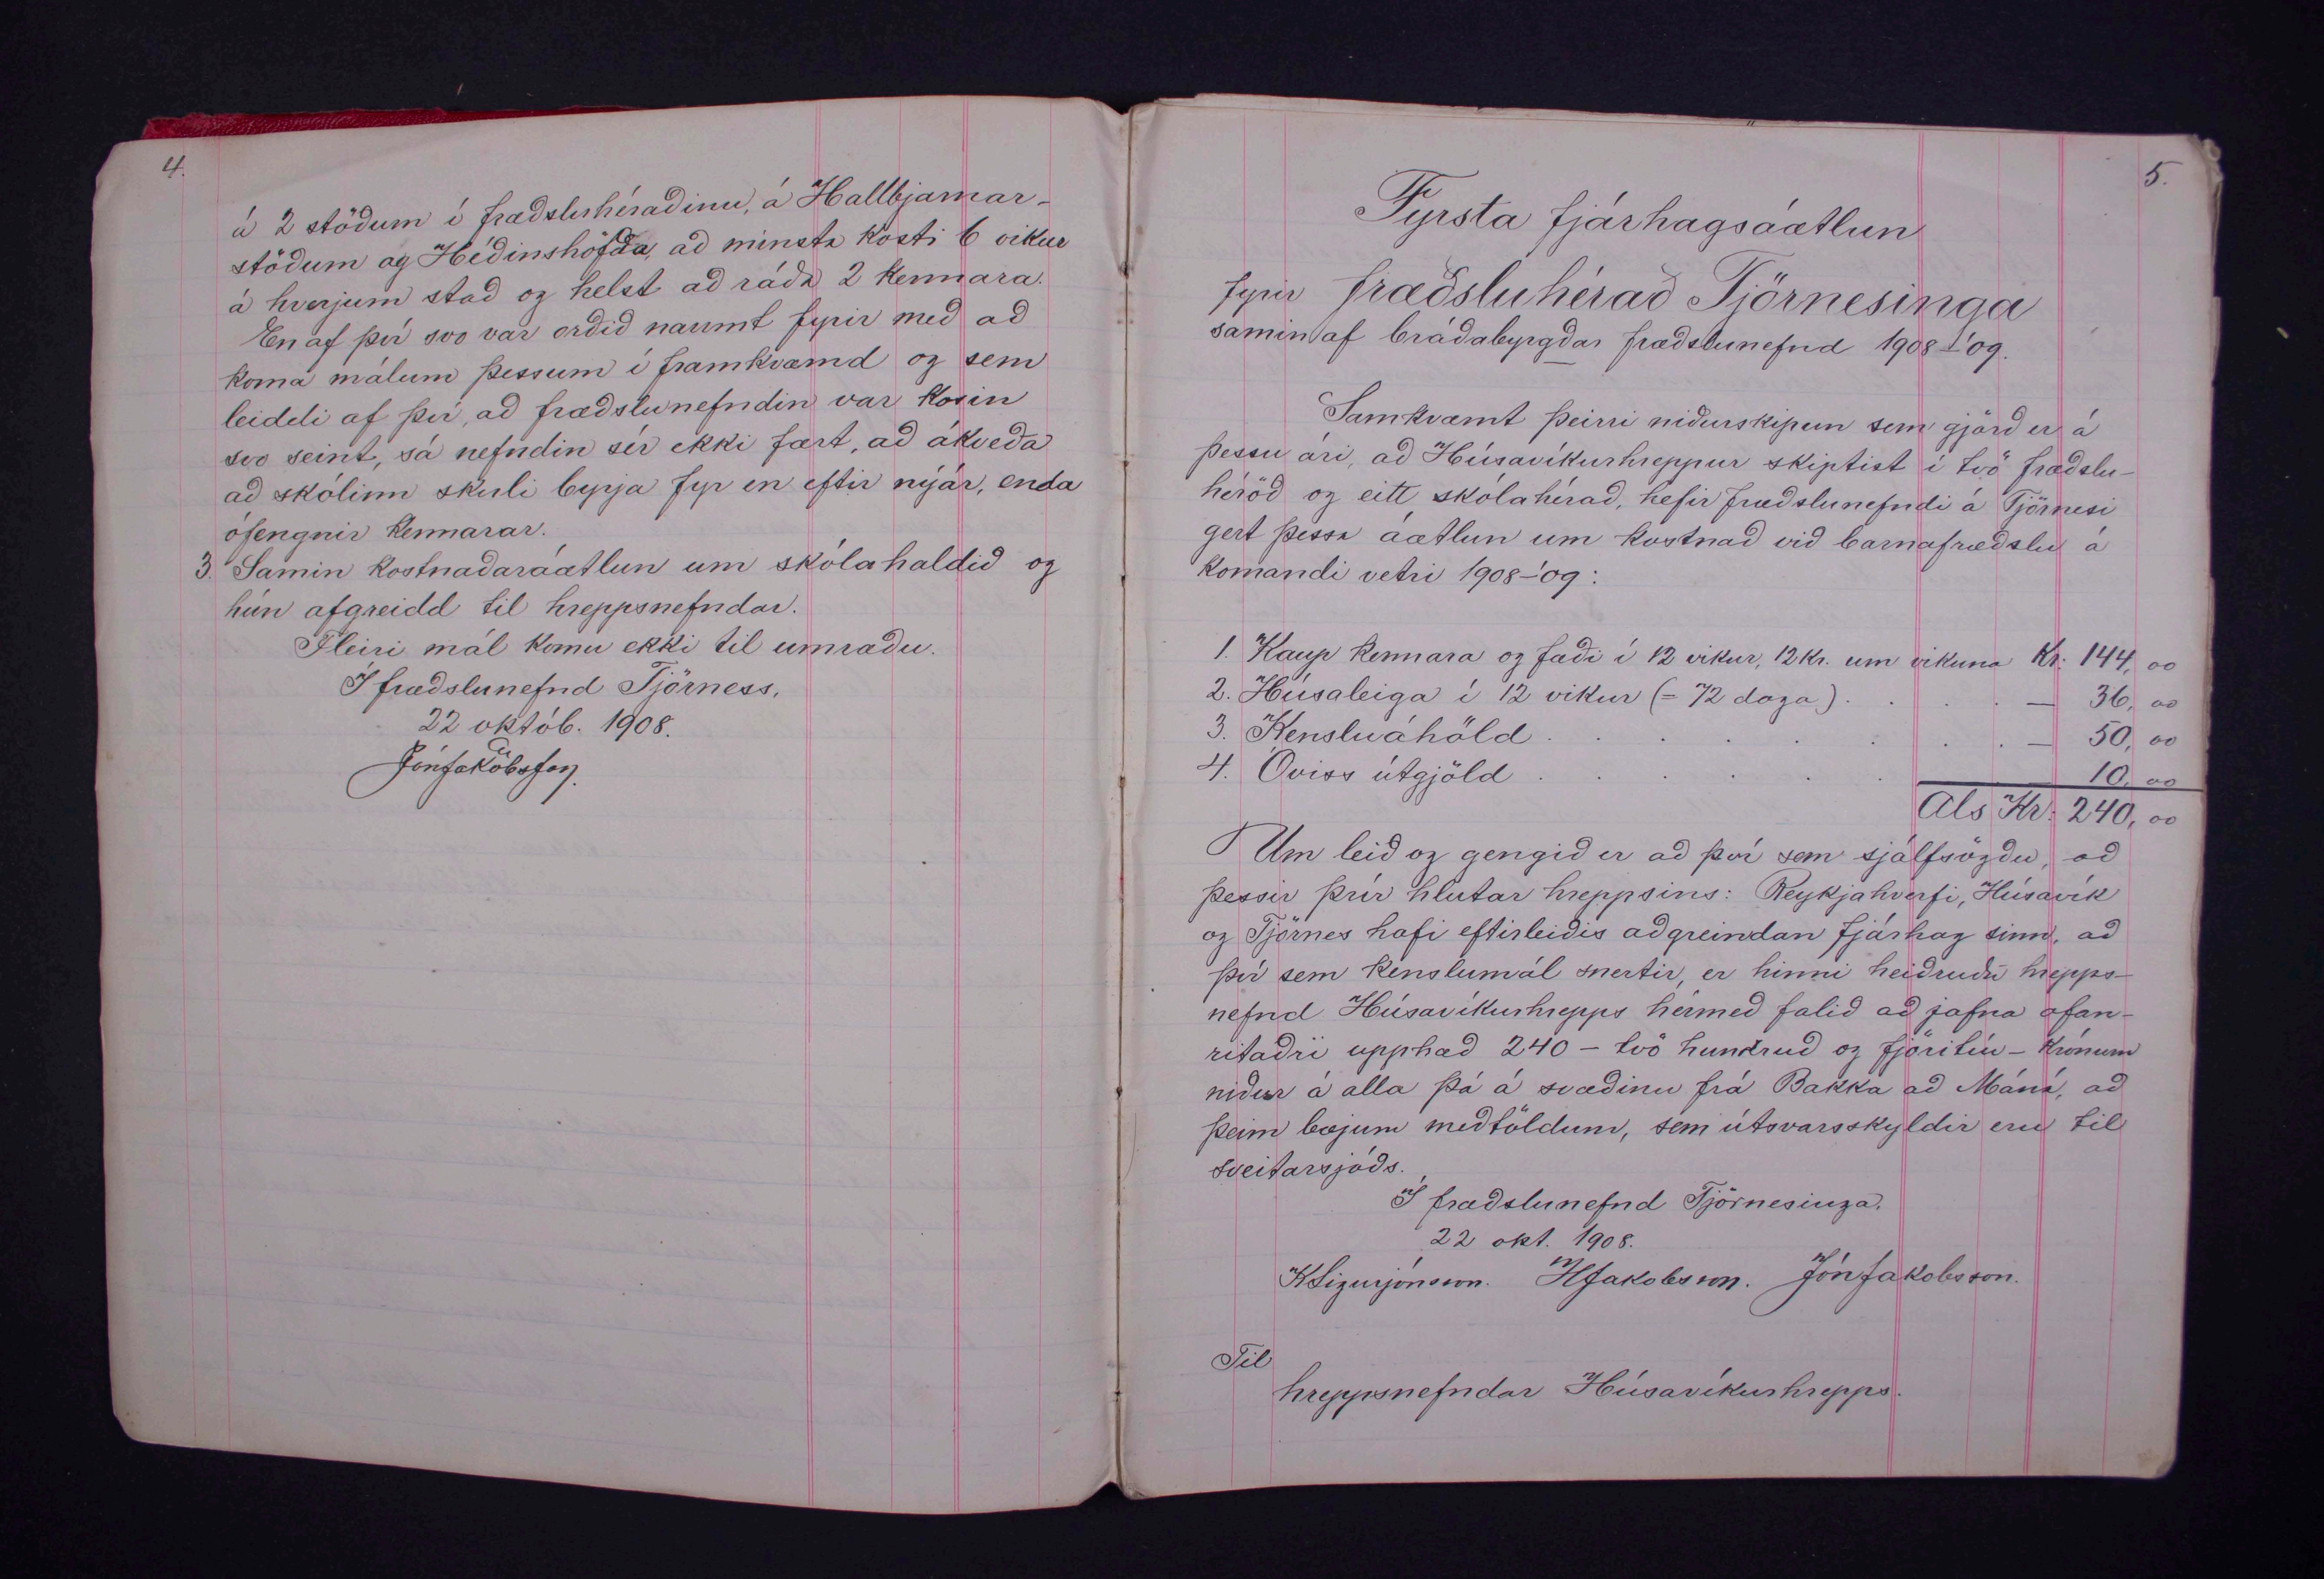 4.
á 2 stöðum í fræðsluhéraðinu, á Hallbjarnar-
stöðum og Héðinshöfða, að minsta kosti 6 vikur
á hverjum stað og helst að ráða 2 kennara.
En af því svo var orðið naumt fyrir með að
koma málum þessum í framkvæmd og sem
leiddi af því, að fræðslunefndin var kosin
svo seint, sá nefndin sér ekki fært, að ákveða
að skólinn skuli byrja fyr en eftir nýjár, enda
ófengnir kennarar.
3. Samin kostnaðaráætlun um skólahaldið og
hún afgreidd til hreppsnefndar.
Fleiri mál komu ekki til umræðu.
Í fræðslunefnd Tjörness,
22 októb. 1908.
Jón Jakobsson.
5.
Fyrsta fjárhagsáætlun
fyrir fræðsluhérað Tjörnesinga
samin af bráðabyrgðar fræðslunefnd 1908-'09.
Samkvæmt þeirri niðurskipun sem gjörð er á
þessu ári, að Húsavíkurhreppur skiptist í tvö fræðslu-
héröð og eitt skólahérað, hefir fræðslunefndi á Tjörnesi
gert þessa áætlun um kostnað við barnafræðslu á
komandi vetri 1908-'09:
1. Kaup kennara og fæði í 12 vikur, 12 kr. um vikuna Kr. 144,00
2. Húsaleiga í 12 vikur (= 72 daga) . . . . — 36,00
3. Kensluáhöld . . . . . . . . — 50,00
4. Óviss útgjöld . . . . . . — 10,00
Als Kr. 240,00
Um leið og gengið er að því sem sjálfsögðu, að
þessir þrír hlutar hreppsins: Reykjahverfi, Húsavík
og Tjörnes hafi eftirleiðis aðgreindan fjárhag sinn, að
því sem kenslumál snertir, er hinni heiðruðu hrepps-
nefnd Húsavíkurhrepps hérmeð falið að jafna ofan-
ritaðri upphæð 240 - tvö hundruð og fjörutíu - krónum
niður á alla þá á svæðinu frá Bakka að Máná, að
þeim bæjum meðtöldum, sem útsvarsskyldir eru til
sveitarsjóðs.
Í fræðslunefnd Tjörnesinga.
22 okt. 1908.
K Sigurjónsson. HJakobsson. Jón Jakobsson.
Til
hreppsnefndar Húsavíkurhrepps.